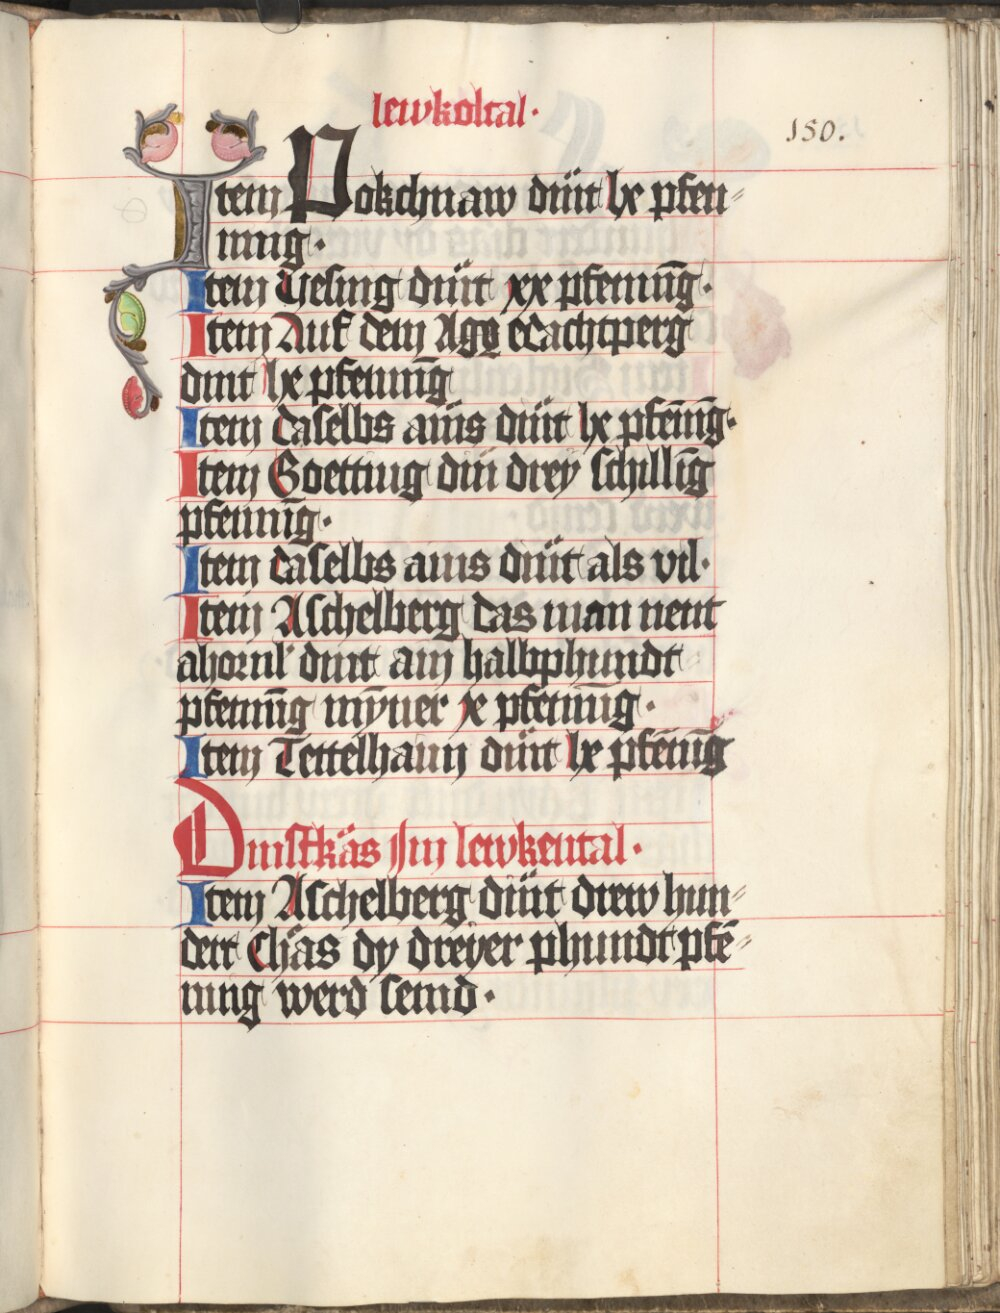 lewkoltal·
150.
Item Pokchnaw dint lx pfen⸗
nnig·
Item Gesing dint xx pfenni̅g·
Item Auf dem Agg
dint lx pfenni̅g
Item daselbs ains dint lx pfe̅ni̅g·
Item Goetting din drey schilli̅g
pfenni̅g·
Item daselbs ains dint als vil·
Item Aschelberg das man nent
ahornl dint ain halbphundt
pfenni̅g my̅ner x pfenni̅g·
Item Tettelhann dint lx pfe̅ni̅g
Dinstkäs Im lewkental·
Item Aschelberg dint drew hun⸗
dert Chäs dy dreyer phundt pfe̅⸗
ning werd seind·